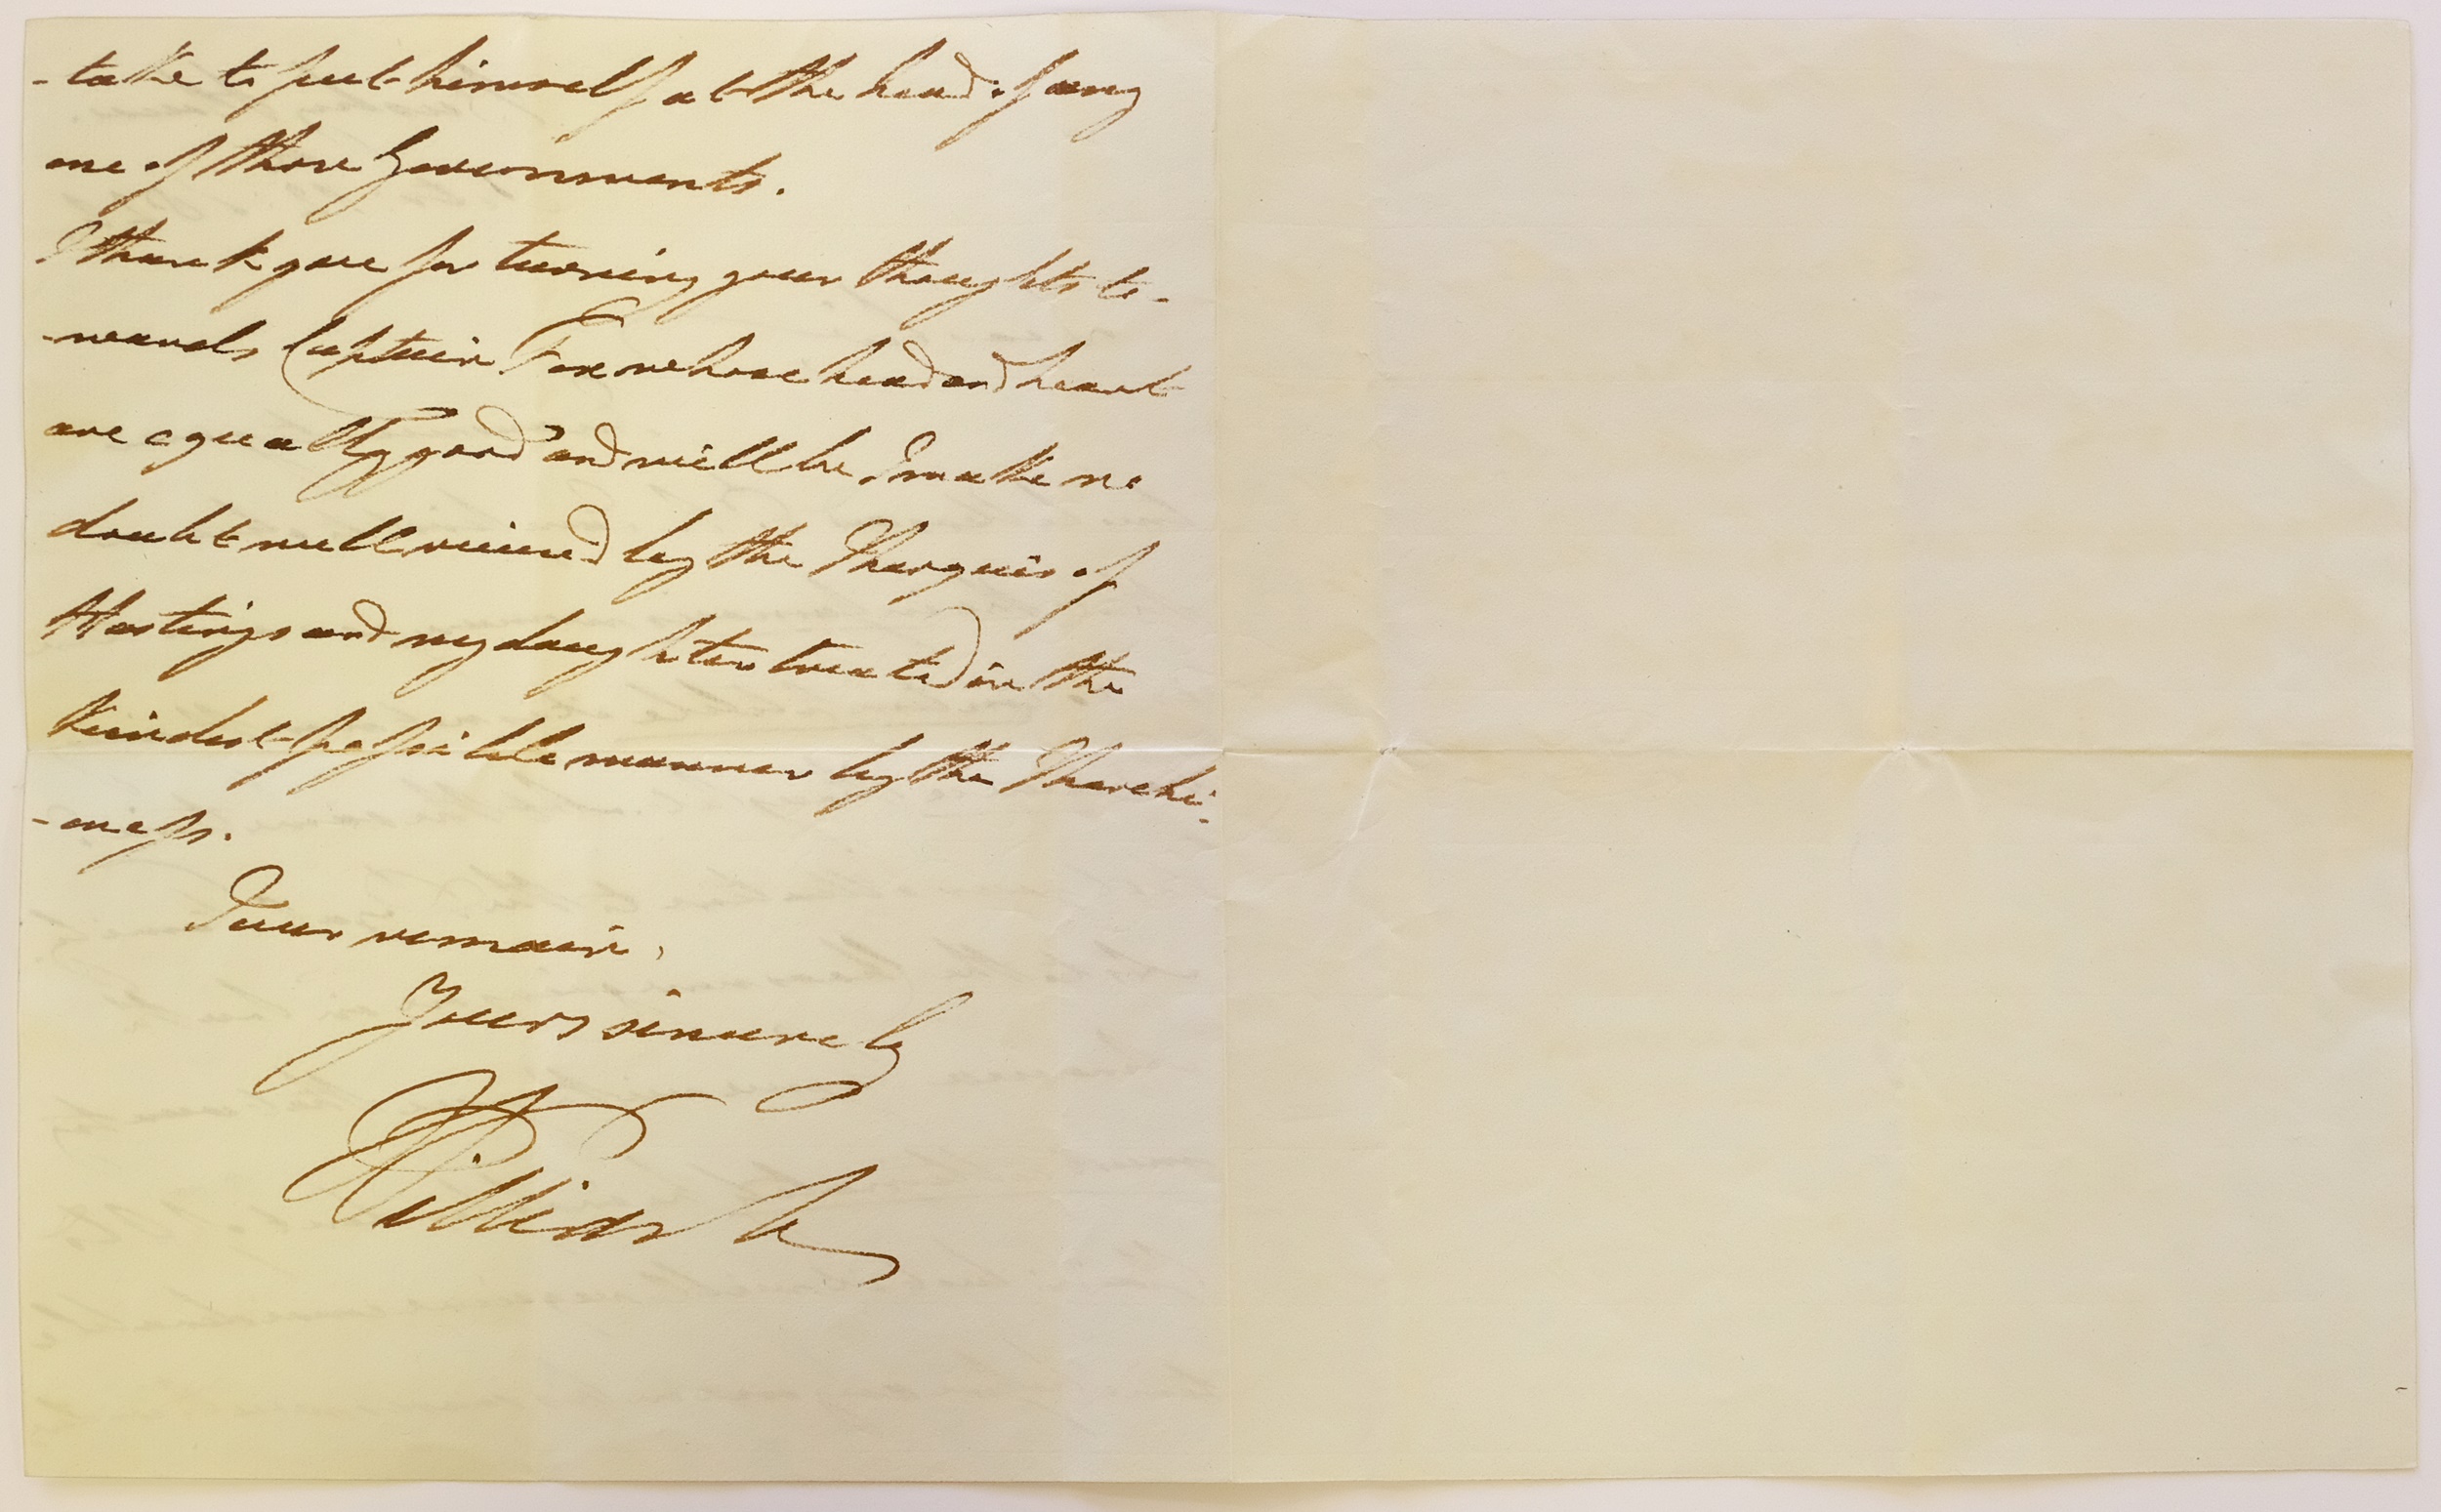 -take to put himself at the head of any
one of those Governments.
I thank you for turning your thoughts to-
-wards Captain Fox whose head and heart
are equally good and will be, I make no
doubt well received by the Marquis of
Hastings and my daughter treated in the
kindest possible manner by the Marchi-
-oness.
I ever remain,
Yours sincerely
William